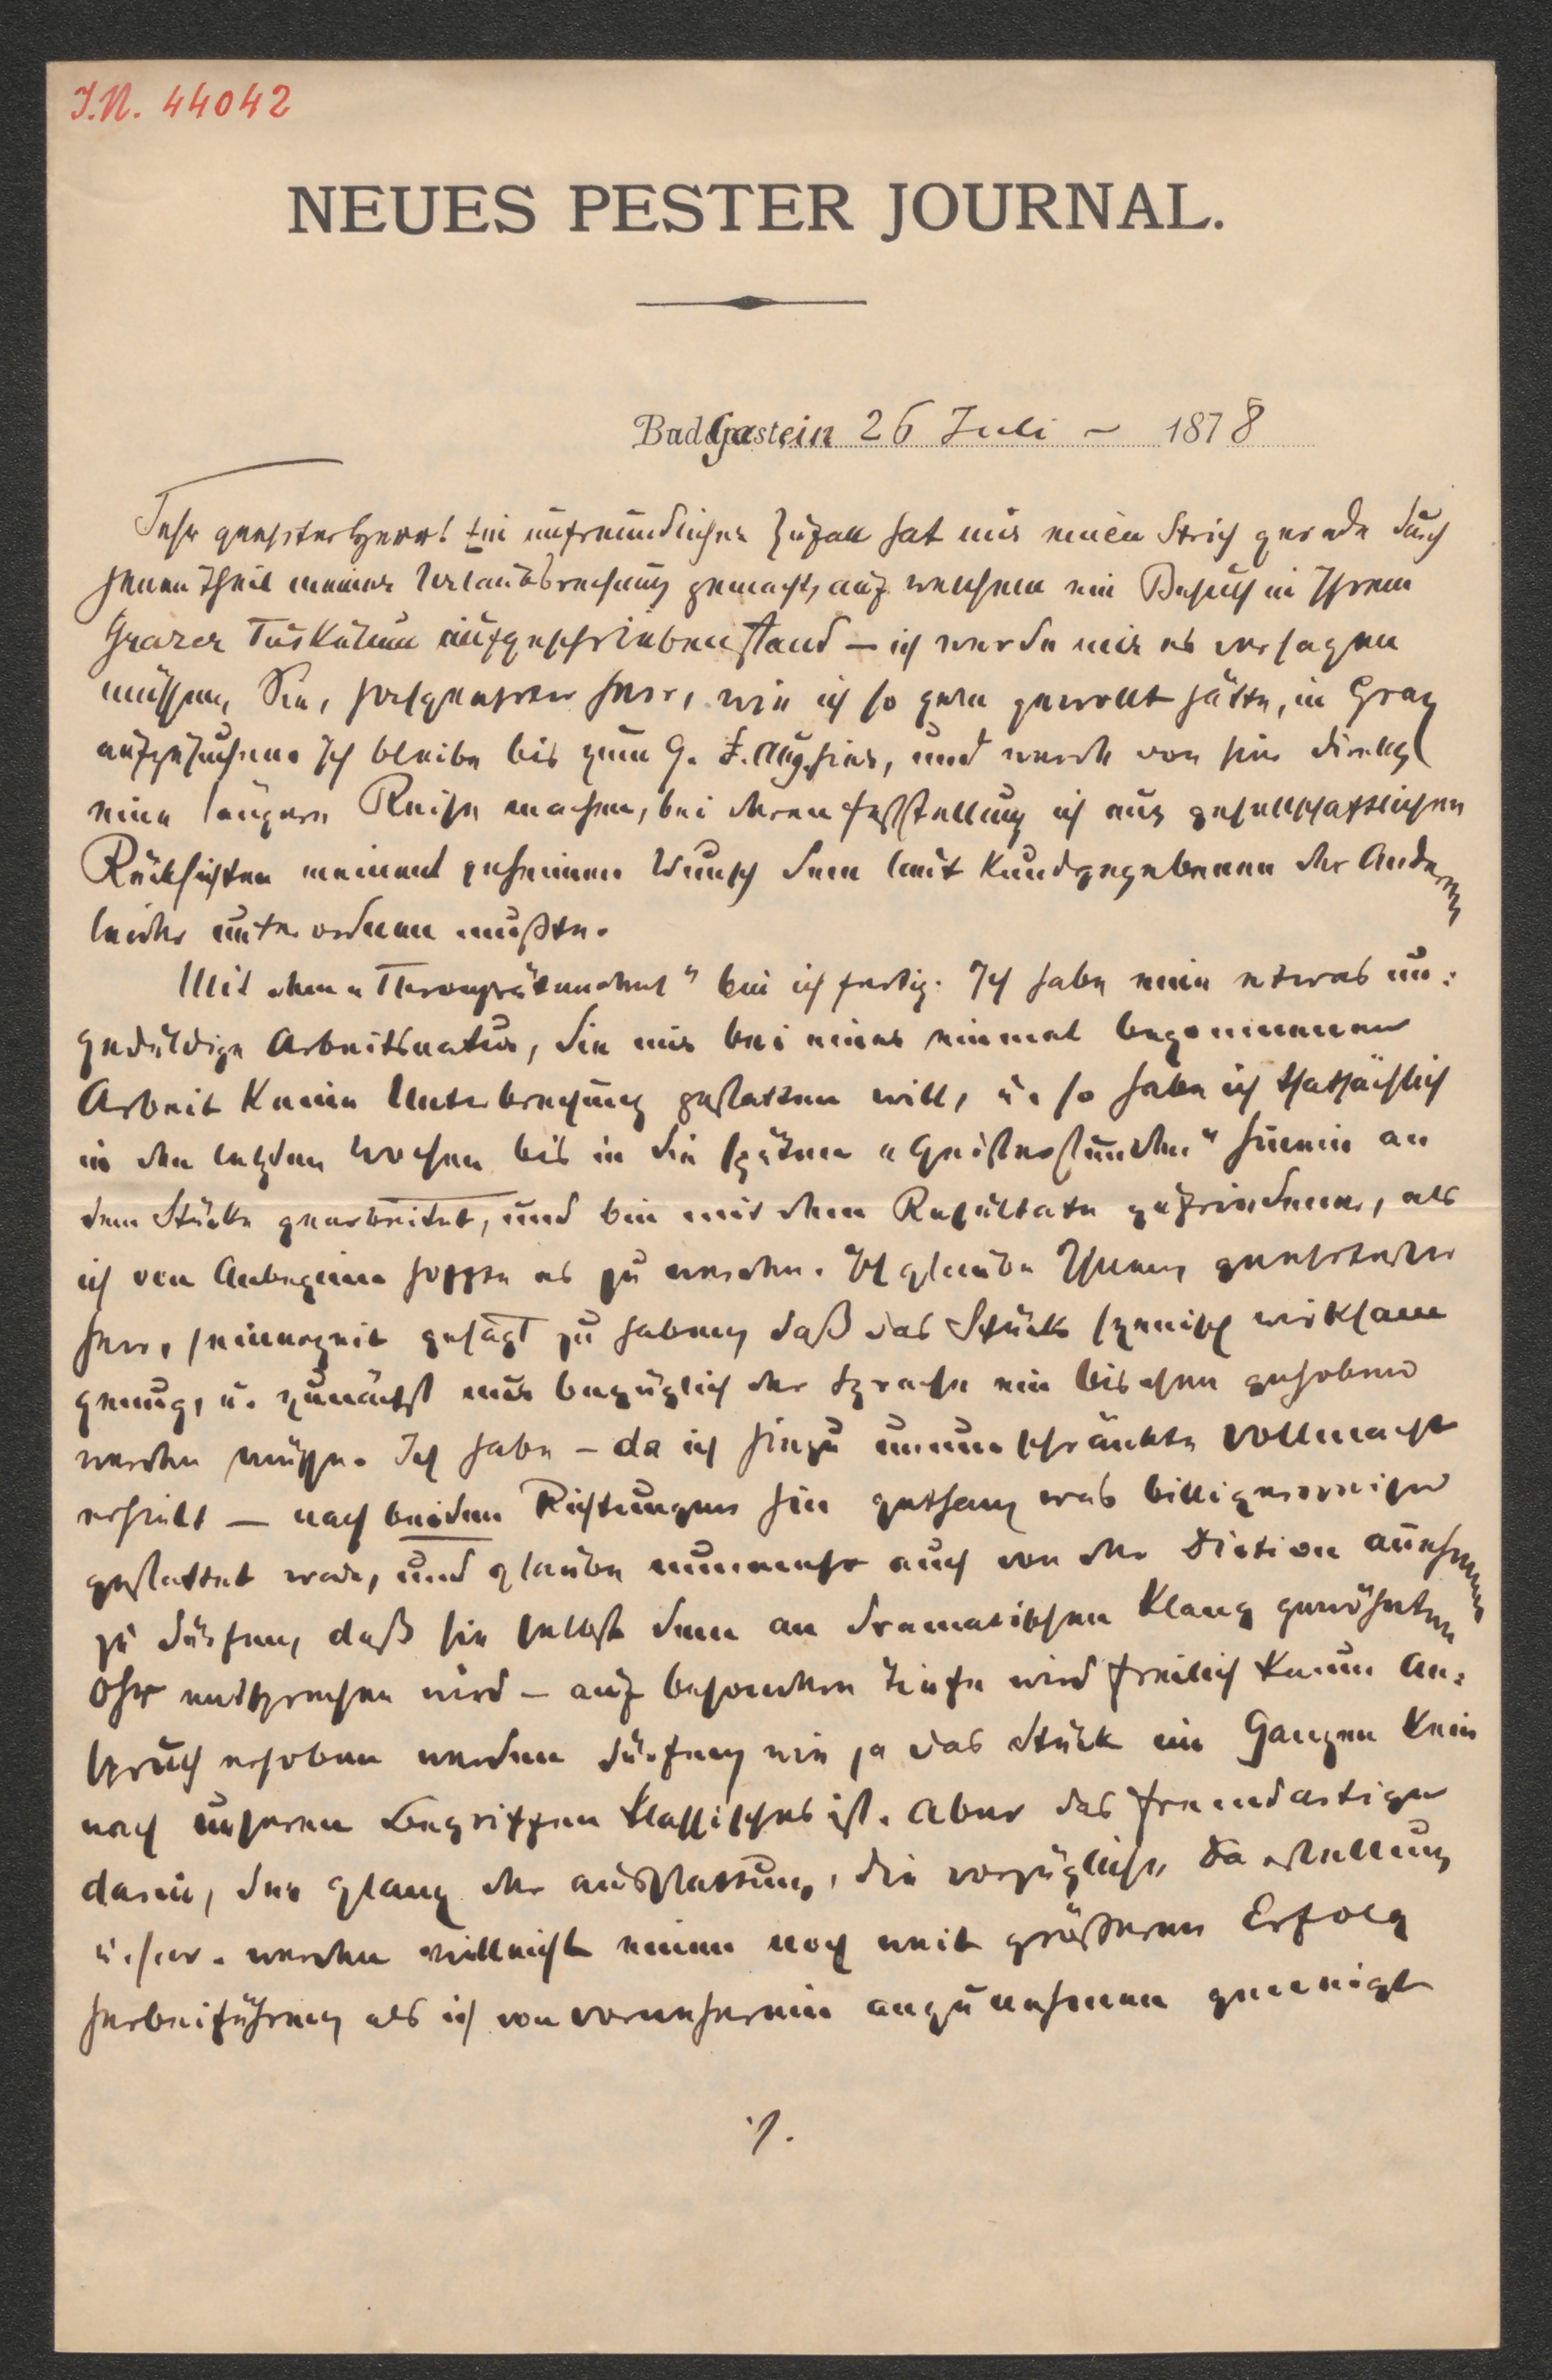 I.N. 44042
NEUES PESTER JOURNAL.
Bad Gastein 26 Juli – 1878
Sehr geehrter Herr! Ein unfreundlicher Zufall hat mir einen Strich gerade durch
jenen Theil meiner Urlaubsrechnung gemacht, auf welchem ein Besuch in Ihrem
Grazer Tuskulum aufgeschrieben stand – ich werde mir es versagen
müssen, Sie, hochgeehrter Herr, wie ich so gern gewollt hätte, in Graz
aufzusuchen. Ich bleibe bis zum 9. Aug. hier, und werde von hier direkt
eine längere Reise machen, bei deren Feststellung ich aus gesellschaftlichen
Rücksichten meinen geheimen Wunsch dem laut kundgegebenen der Anderen
leider unterordnen mußte.
Mit dem „Thronprätendent" bin ich fertig. Ich habe eine etwas un:
geduldige Arbeitsnatur, die mir bei einer einmal begonnenen
Arbeit keine Unterbrechung gestatten will, u. so habe ich thatsächlich
in den letzten Wochen bis in die späten „Geisterstunden" hinein an
dem Stücke gearbeitet, und bin mit dem Resultate zufriedener, als
ich von Anbeginn hoffte es zu werden. Ich glaube Ihnen, geehrtester
Herr, seinerzeit gesagt zu haben, daß das Stück szenisch wirksam
genug, u. zunächst nur bezüglich der Sprache ein bischen gehoben
werden müsse. Ich habe – da ich hiezu unumschränkte Vollmacht
erhielt – nach beiden Richtungen hin gethan, was billigerweise
gestattet war, und glaube nunmehr auch von der Diction annehmen
zu dürfen, daß sie selbst dem an dramatischen Klang gewöhnten
Ohr entsprechen wird – auf besondere Tiefe wird freilich kaum An:
spruch erhoben werden dürfen, wie ja das Stück im Ganzen kein
nach unseren Begriffen klassisches ist. Aber das fremdartige
darin, der Glanz der Ausstattung, die vorzügliche Darstellung
u.s.w. werden vielleicht einen noch weit größeren Erfolg
herbeiführen, als ich von vorneherein anzunehmen geneigt
./.